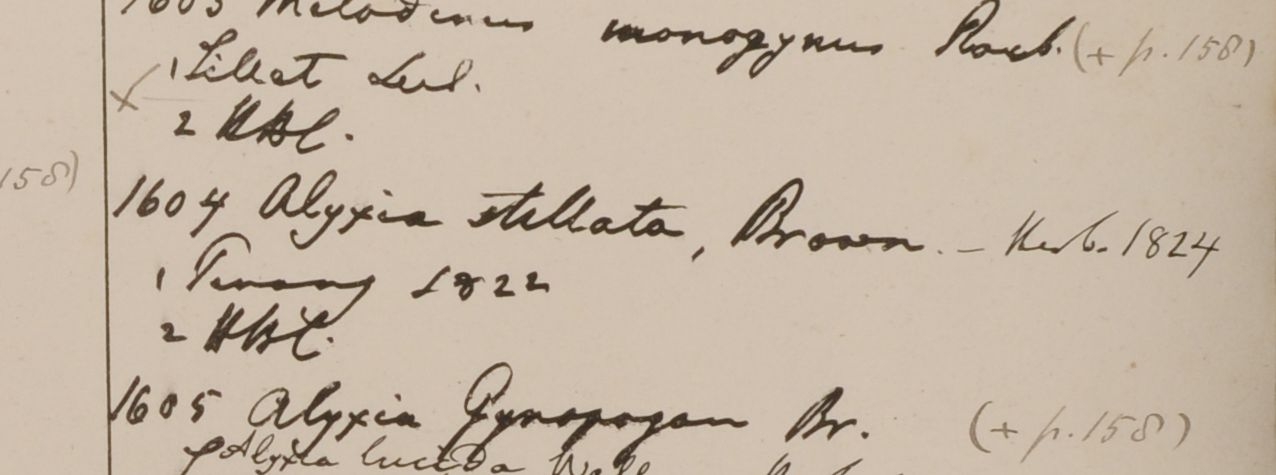 1603 Melodinus monogynus Roxb. (+ p. 158)
1 Sillet
2 HBC.
158)
1604 Alyxia stellata, Brown. - Herb. 1824
1 Penang 1822
2 HBC.
1605 Alyxia Gynopogon Br. (+ p. 158)
Alyxia lucida Wall